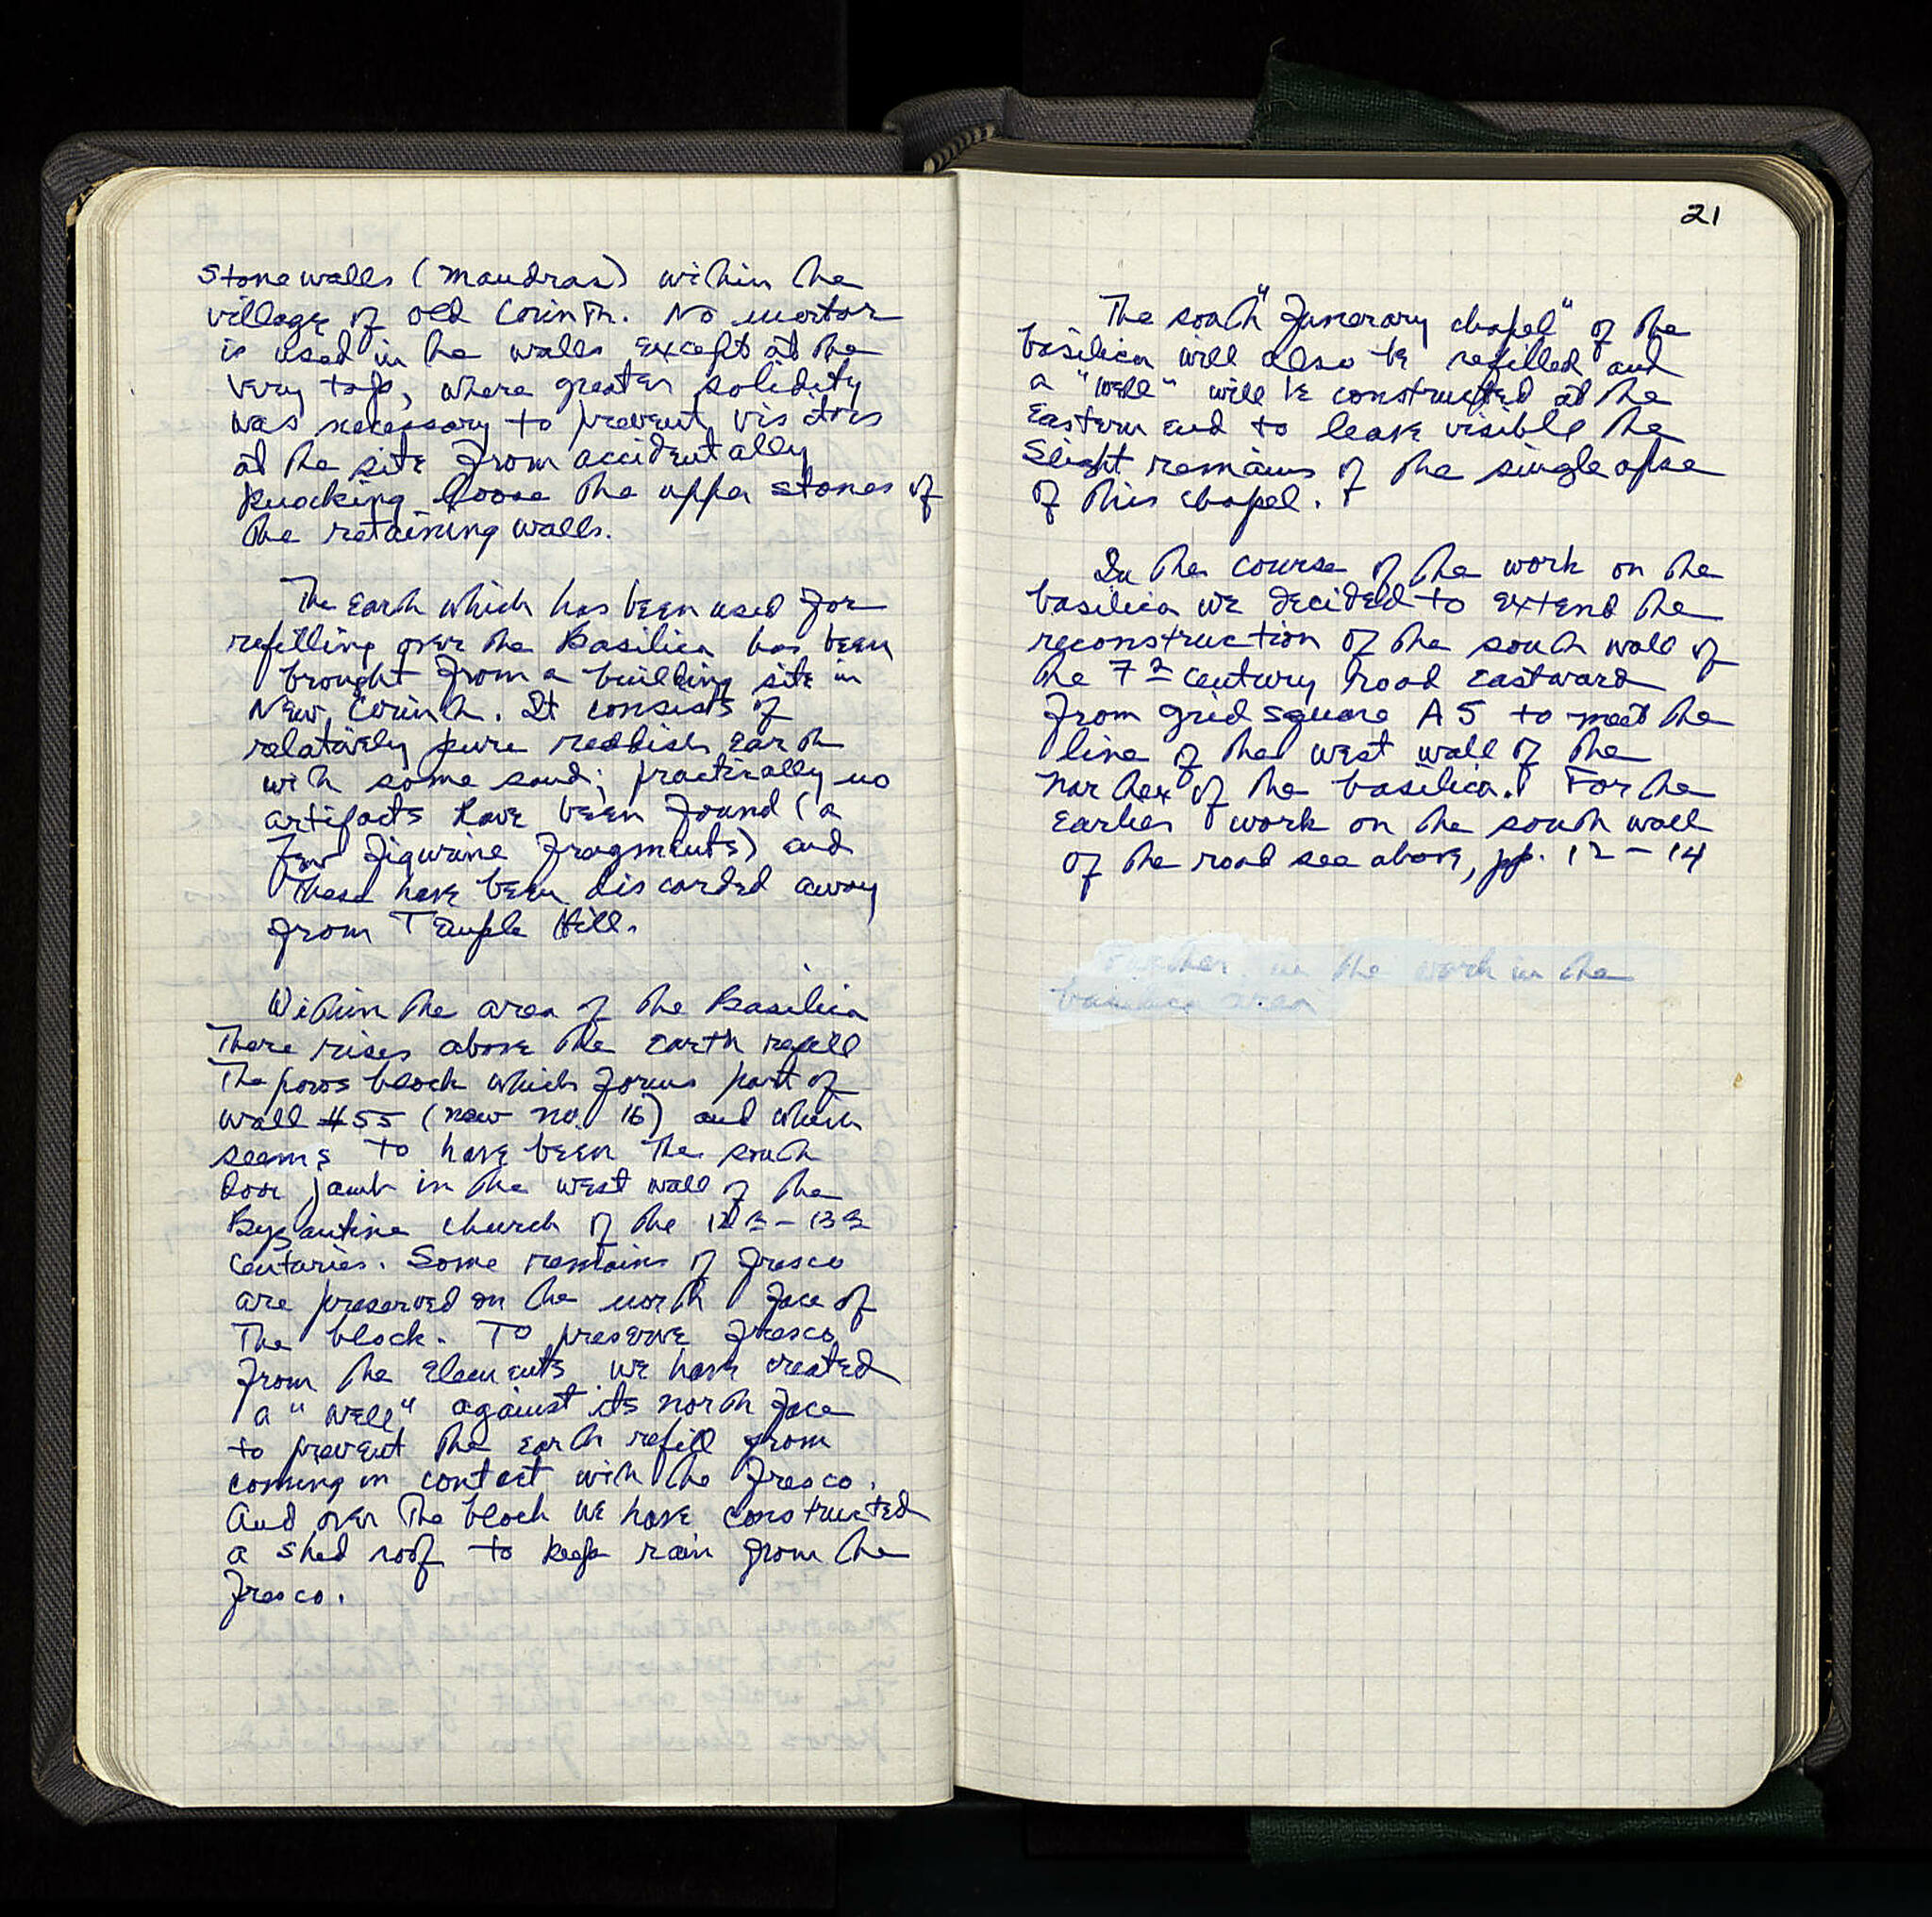 stone walls (mandras) within the
village of old Corinth. No mortar
is used in the walls except at the
very top, where greater solidity
was necessary to prevent visitors
at the site from accidentally
knocking loose the upper stones of
the retaining walls.
The earth which has been used for
refilling over the Basilica has been
brought from a building site in
New Corinth. It consists of
relatively pure reddish earth
with some sand; practically no
artifacts have been found (a
few figurine fragments) and
these have been discarded away
from Temple Hill.
Within the area of the Basilica
there rises above the earth refill
the poros block which forms part of
wall #55 (new no. 16) and which
seems to have been the south
door jamb in the west wall of the
Byzantine church of the 12th – 13th
centuries. Some remains of fresco
are preserved on the north face of
the block. To preserve fresco
from the elements we have created
a "well" against its north face
to prevent the earth refill from
coming in contact with the fresco.
And over the block we have constructed
a shed roof to keep rain from the
fresco.
21
The south "funerary chapel" of the
basilica will also be refilled and
a "well" will be constructed at the
eastern end to leave visible the
slight remains of the single apse
of this chapel.
In the course of the work on the
basilica we decided to extend the
reconstruction of the south wall of
the 7th century road eastward
from grid square A5 to meet the
line of the west wall of the
narthex of the basilica. For the
earlier work on the south wall
of the road see above, pp. 12 – 14
in the work in the
basilica area